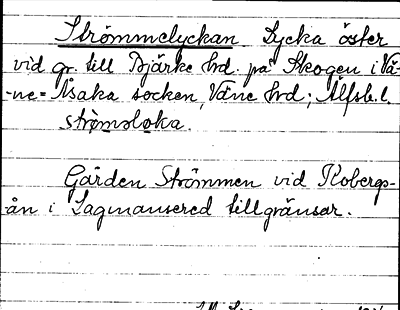 Strömmelyckan. Lycka öster
vid gr. till Bjärke hd. på Skogen i Vä-
-ne-Åsaka socken, Väne hd; Älfsb. l.
strømsloka.
Gården Strömmen vid Kobergs-
-ån i Lagmansered tillgränsar.